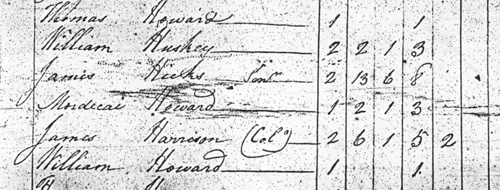 Thomas Howard 1 1
William Huskey 2 2 1 3
James Hicks Senr 2 13 6 8
Mordecai Howard 1 2 1 3
James Harrison (Colo) 2 6 1 5 2
William Howard 1 1